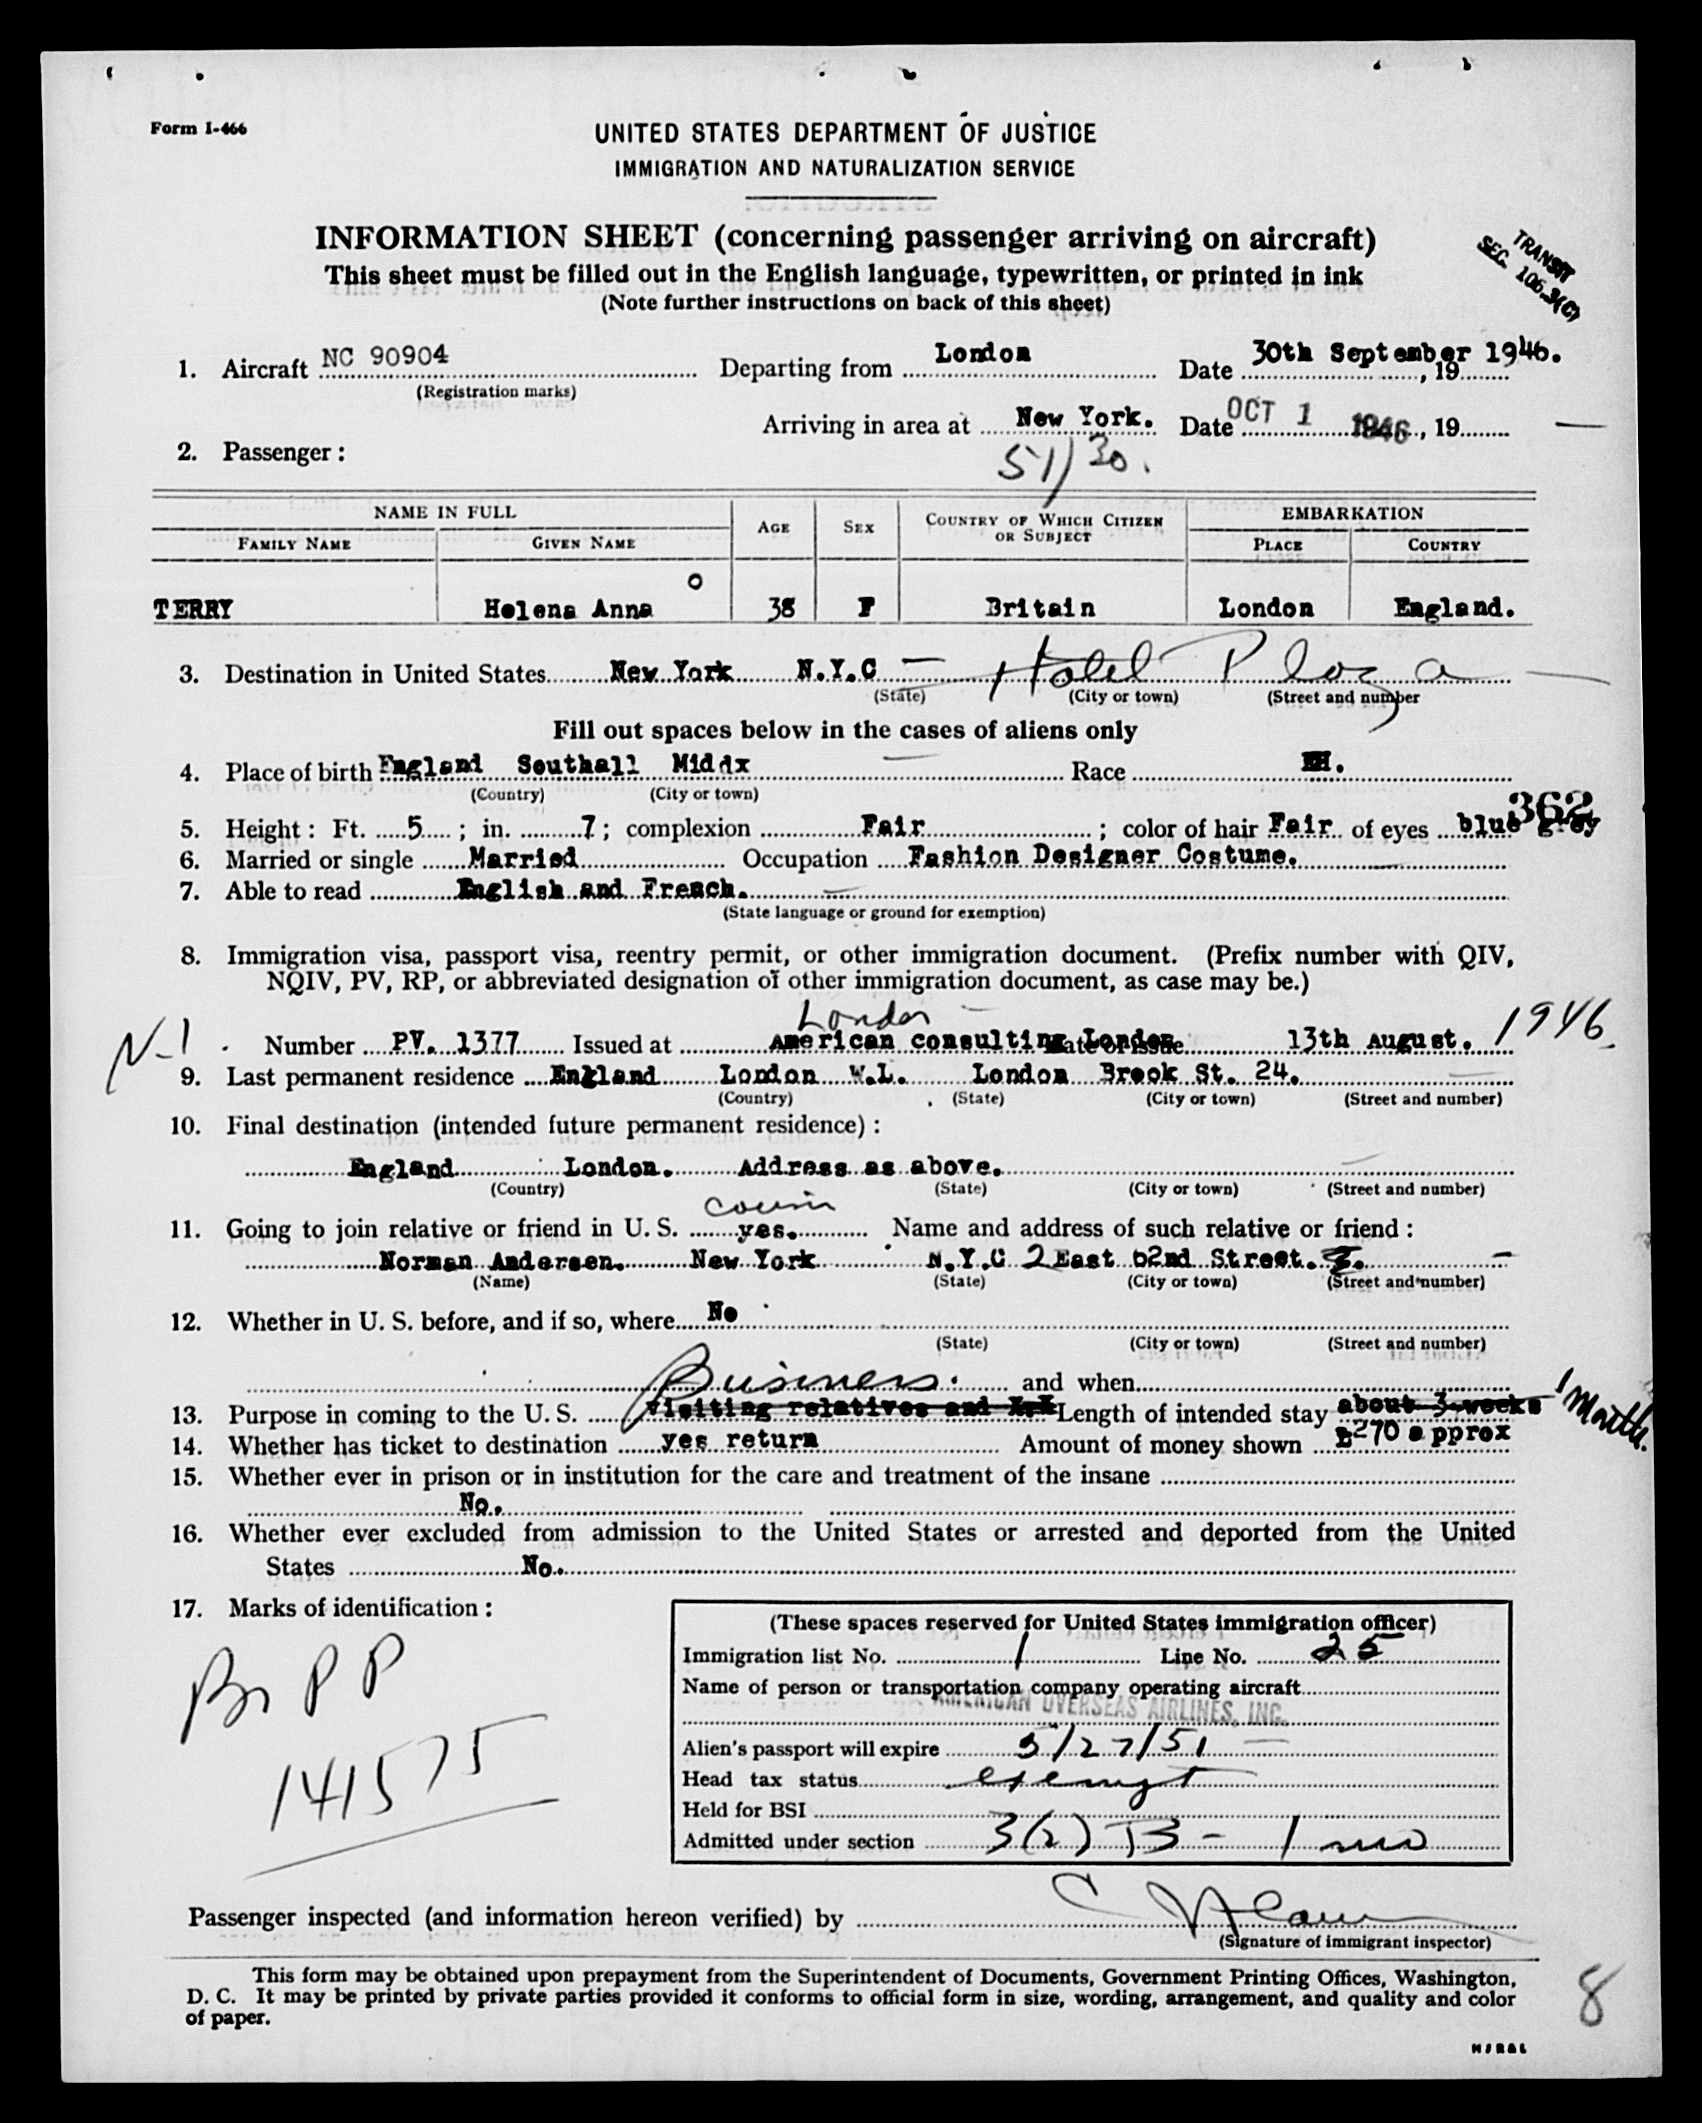 Form I-466
UNITED STATES DEPARTMENT OF JUSTICE
IMMIGRATION AND NATURALIZATION SERVICE
INFORMATION SHEET (concerning passenger arriving on aircraft)
This sheet must be filled out in the English language, typewritten, or printed in ink
(Note further instructions on back of this sheet)
TRANSIT
SEC. 106.3(C)
1. Aircraft NC 90904 Departing from London Date 30th September 1946. , 19
(Registration marks)
Arriving in area at New York. Date OCT 1 1946 , 19
2. Passenger :
51/30.
NAME IN FULL AGE SEX COUNTRY OF WHICH CITIZEN OR SUBJECT EMBARKATION
FAMILY NAME GIVEN NAME PLACE COUNTRY
TERRY Helena Anna 38 F Britain London England.
3. Destination in United States New York N.Y.C — Hotel Plaza
(State) (City or town) (Street and number
Fill out spaces below in the cases of aliens only
4. Place of birth England Southall Middx Race
(Country) (City or town)
362
5. Height : Ft. 5 ; in. 7 ; complexion Fair ; color of hair Fair of eyes blue grey
6. Married or single Married Occupation Fashion Designer Costume.
7. Able to read English and French.
(State language or ground for exemption)
8. Immigration visa, passport visa, reentry permit, or other immigration document. (Prefix number with QIV,
NQIV, PV, RP, or abbreviated designation of other immigration document, as case may be.)
London
N-1 Number PV. 1377 Issued at American consulting London Date of issue 13th August. 1946
9. Last permanent residence England London W.L. London Brook St. 24.
(Country) (State) (City or town) (Street and number)
10. Final destination (intended future permanent residence) :
England London. Address as above.
(Country) (State) (City or town) (Street and number)
cousin
11. Going to join relative or friend in U. S. yes. Name and address of such relative or friend :
Norman Andersen. New York N.Y.C 2 East 62nd Street.
(Name) (State) (City or town) (Street and number)
12. Whether in U. S. before, and if so, where No
(State) (City or town) (Street and number)
Business. and when
13. Purpose in coming to the U. S. visiting relatives and Length of intended stay about 3 weeks 1 Month.
14. Whether has ticket to destination yes return Amount of money shown £270 approx
15. Whether ever in prison or in institution for the care and treatment of the insane
No.
16. Whether ever excluded from admission to the United States or arrested and deported from the United
States No.
17. Marks of identification :
Br PP
141575
(These spaces reserved for United States immigration officer)
Immigration list No. 1 Line No. 25
Name of person or transportation company operating aircraft
AMERICAN OVERSEAS AIRLINES, INC.
Alien's passport will expire 5/27/51 —
Head tax status exempt
Held for BSI
Admitted under section 3(2) B - 1 mo
Passenger inspected (and information hereon verified) by
(Signature of immigrant inspector)
This form may be obtained upon prepayment from the Superintendent of Documents, Government Printing Offices, Washington,
D. C. It may be printed by private parties provided it conforms to official form in size, wording, arrangement, and quality and color
of paper.
8